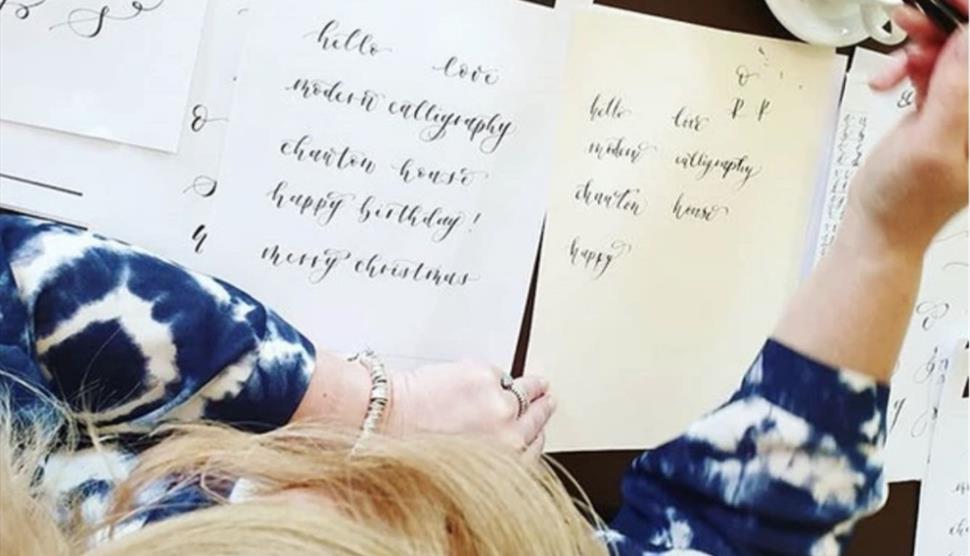 hello love
modern calligraphy
chawton house
happy birthday!
merry christmas
R P
hello love
modern calligraphy
chawton house
happy